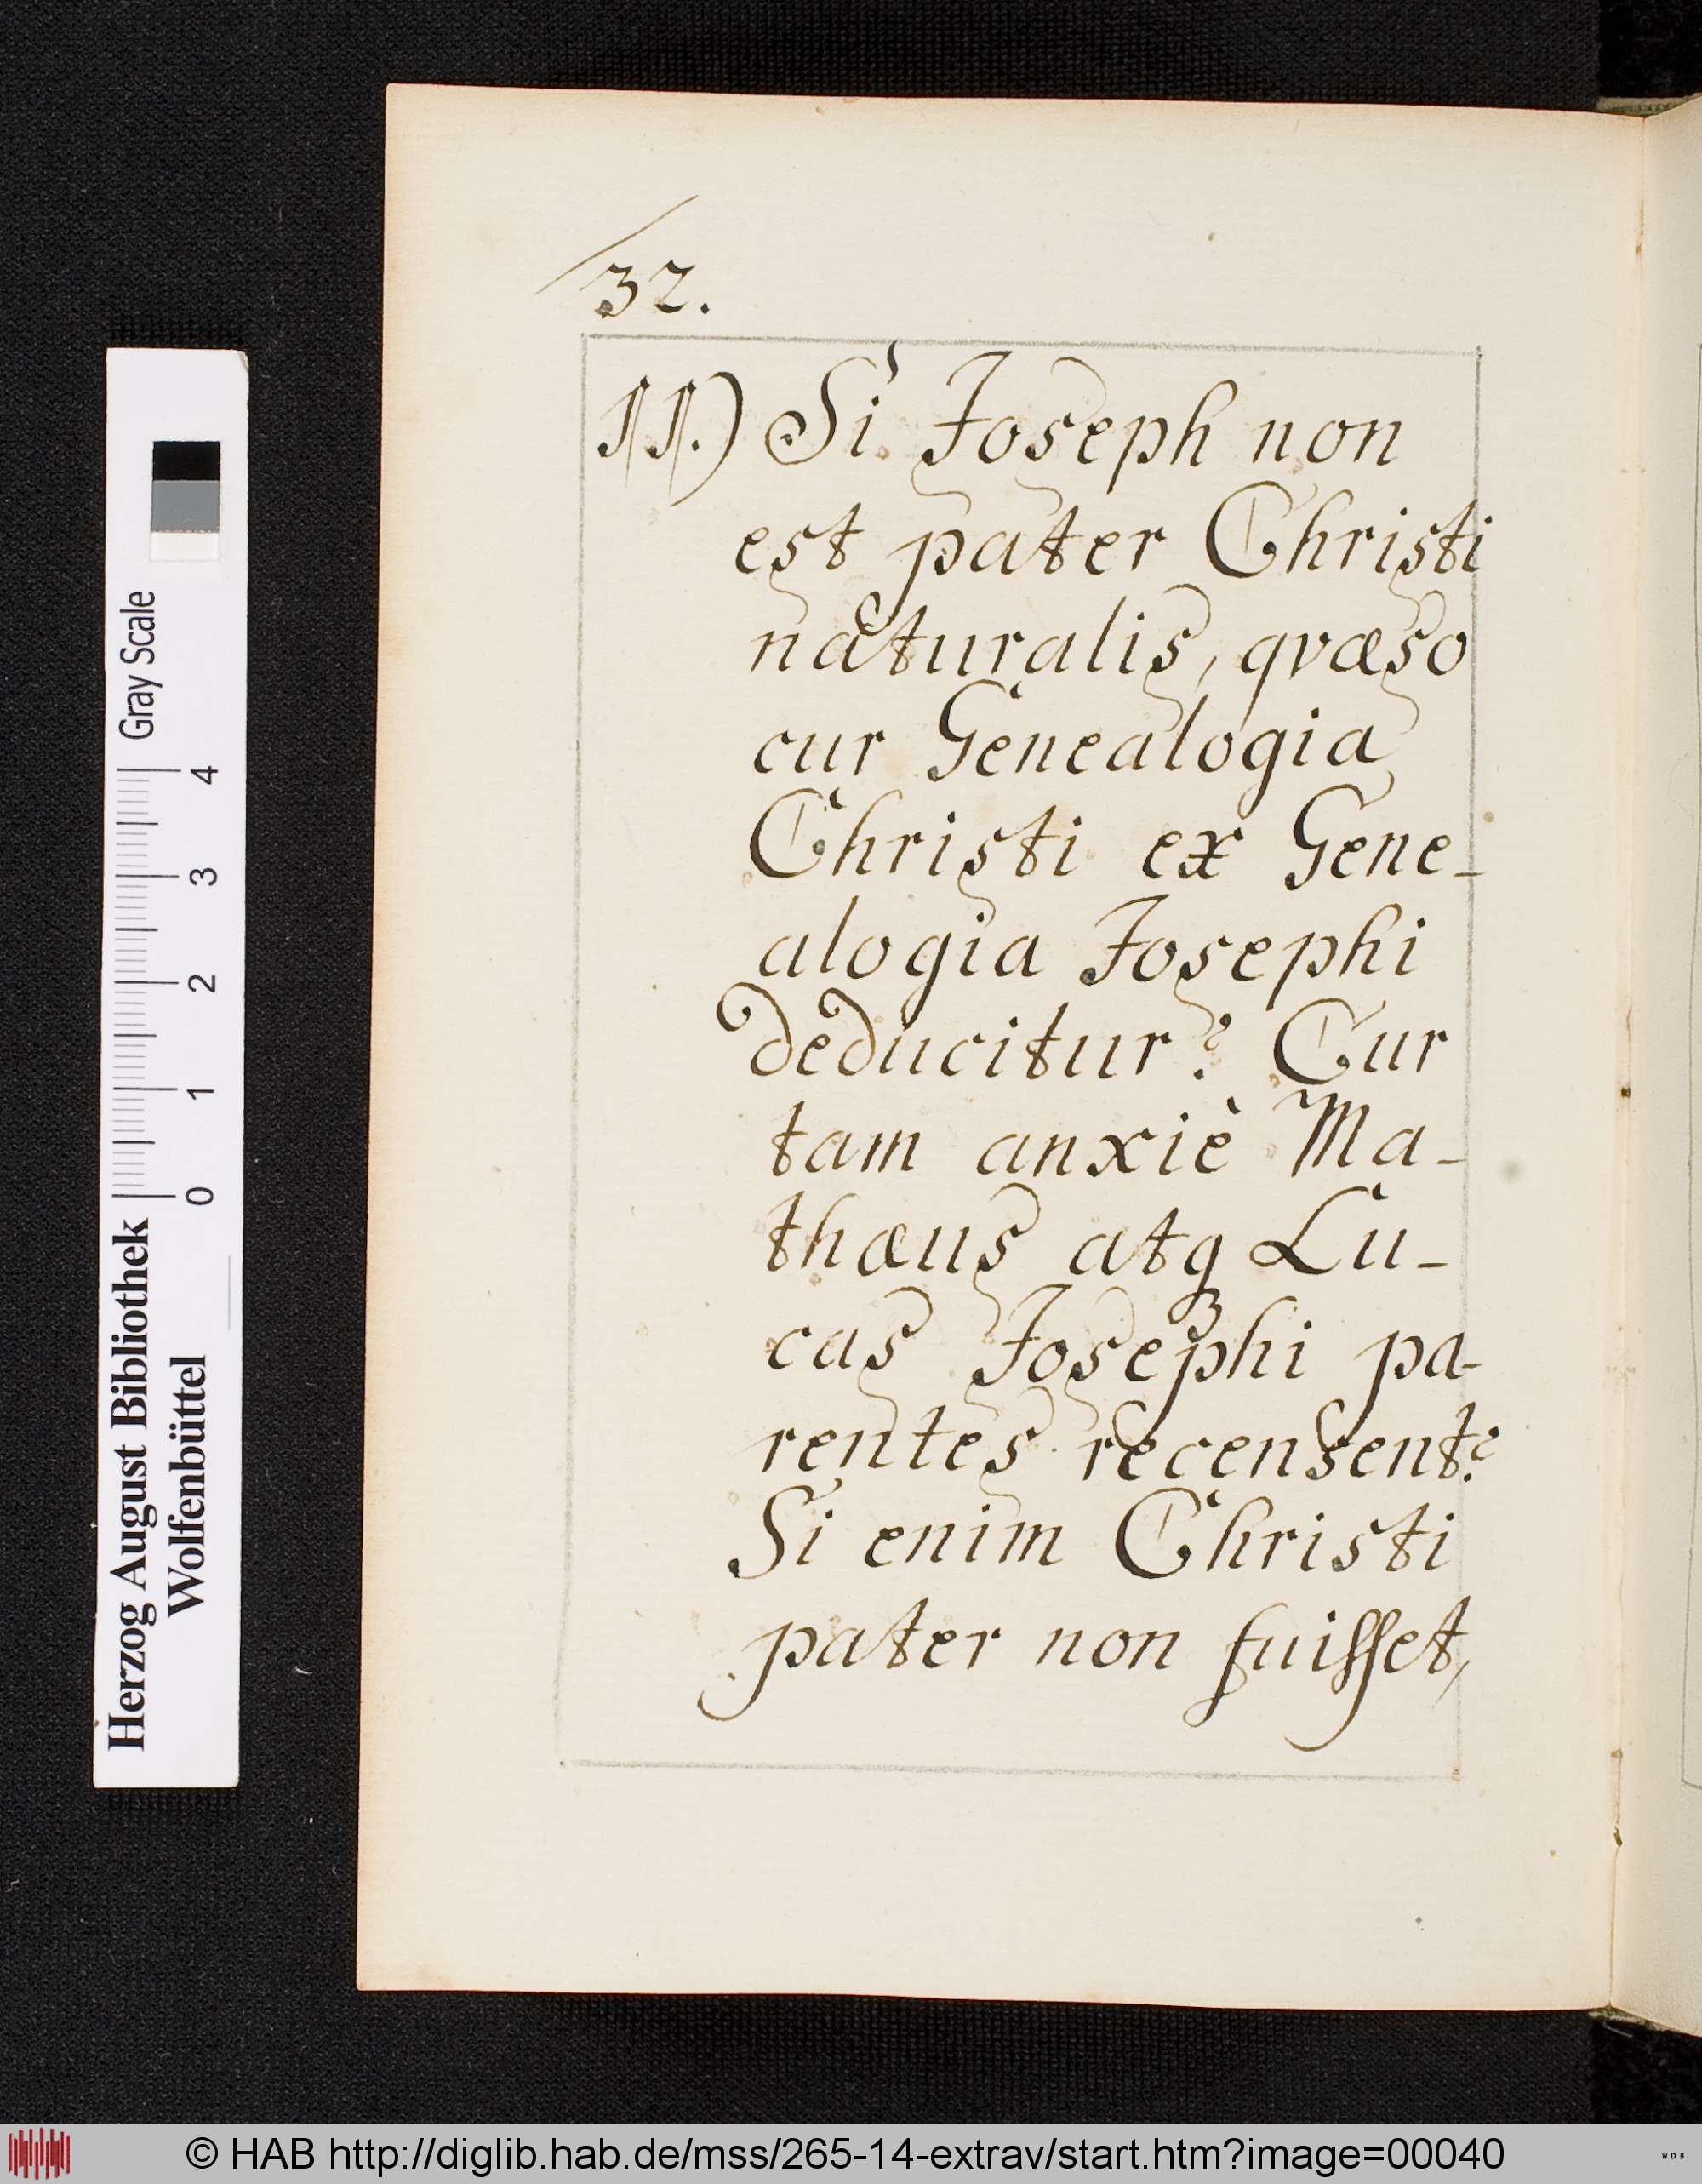 32.
11.) Si Joseph non
est pater Christi
naturalis, qvæso
cur Genealogia
Christi ex Gene-
alogia Josephi
deducitur? Cur
tam anxiè Ma-
thæus atqꝫ Lu-
cas Josephi pa-
rentes recensent?
Si enim Christi
pater non fuiſſet,
Herzog August Bibliothek
Wolfenbüttel
0 1 2 3 4
Gray Scale
© HAB http://diglib.hab.de/mss/265-14-extrav/start.htm?image=00040
WDB